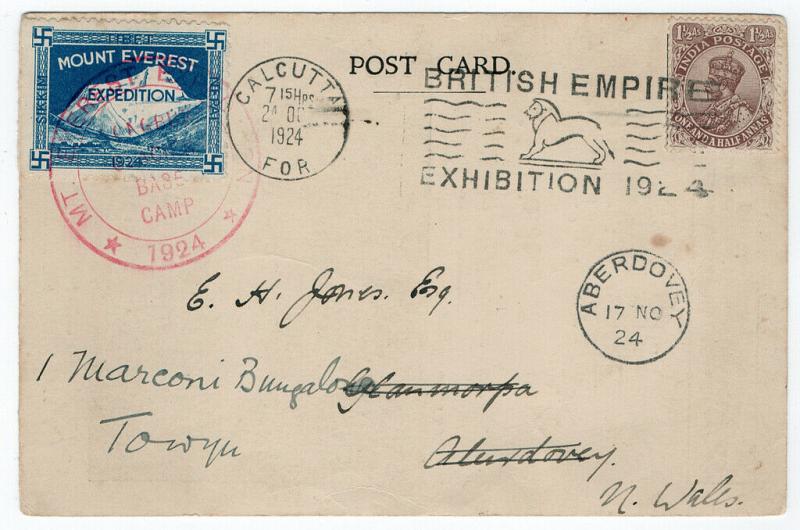 TIBET
MOUNT EVEREST
EXPEDITION
SIKKIM
1924
MT. EVEREST
BASE
CAMP
1924
CALCUTTA
7 15 HRS
24 OC
1924
FOR
POST CARD.
BRITISH EMPIRE
EXHIBITION 1924
1½As 1½As
INDIA POSTAGE
ONE AND A HALF ANNAS
ABERDOVEY
17 NO
24
E. H. Jones. Esq.
1 Marconi Bungalow Glanmorfa
Towyn Aberdovey.
N. Wales.